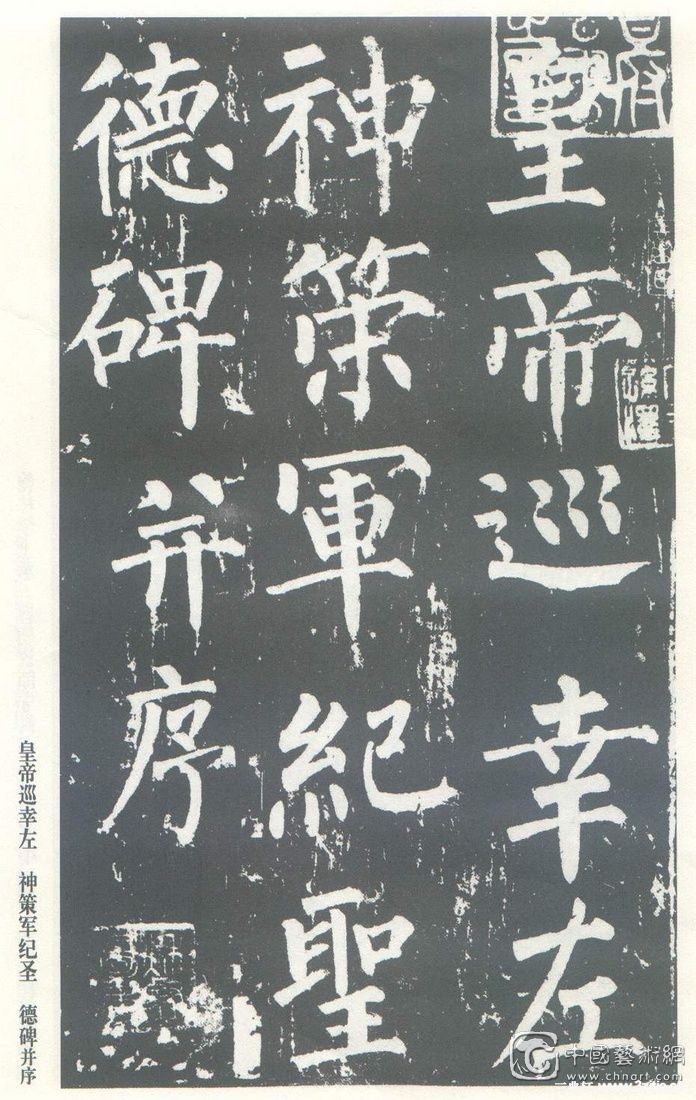 皇帝巡幸左
神策軍紀聖
德碑并序
皇帝巡幸左 神策军纪圣 德碑并序
中國藝術網
www.chnart.com